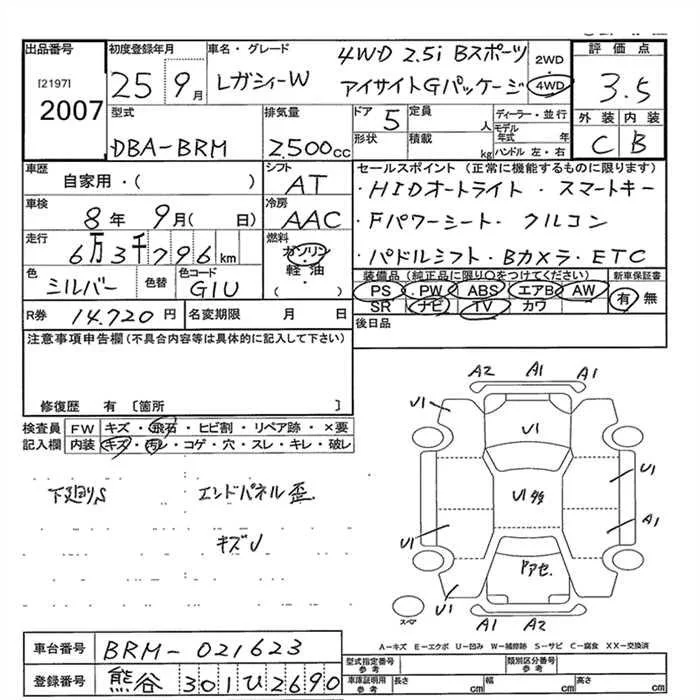 出品番号 初度登録年月 車名・グレード 4WD 2.5i Bスポーツ 2WD 評価点
[2197] 25 9月 レガシィーW アイサイトGパッケージ 4WD 3.5
2007 型式 排気量 ドア 5 定員 人 ディーラー・並行 外装 内装
DBA-BRM 2.500cc 形状 積載 kg モデル年式 年 ハンドル 左・右 C B
車歴 シフト セールスポイント (正常に機能するものに限ります)
自家用・( ) AT ・HIDオートライト ・スマートキー
車検 8年 9月( 日) 冷房 AAC ・Fパワーシート・クルコン
走行 6万3千796km 燃料 ガソリン・軽油・( ) ・パドルシフト・Bカメラ・ETC
色 シルバー 色替 色コード G1U 装備品(純正品に限り○をつけてください) 新車保証書
PS PW ABS エアB AW 有 無
SR ナビ TV カワ
R券 14.720円 名変期限 月 日 後日品
注意事項申告欄(不具合内容等は具体的に記入して下さい)
修復歴 有 [箇所 ]
検査員 FW キズ・飛石・ヒビ割・リペア跡・×要
記入欄 内装 キズ・汚れ・コゲ・穴・スレ・キレ・破レ
A2 A1 A1
U1
U1
U1
下廻りS エンドパネル歪
キズU
U1
A1
U1
U1
スペア
A1 A2
A-キズ E-エクボ U-凹み W-補修跡 S-サビ C-腐食 XX-交換済
車台番号 BRM-021623
登録番号 熊谷 301ひ2690
型式指定番号 参考 類別区分番号 参考
車庫証明用 参考 長さ cm 幅 cm 高さ cm